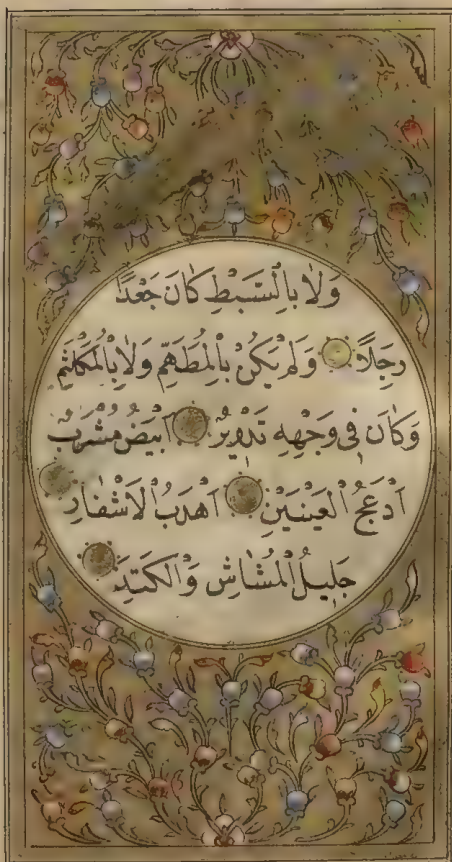 وَلَا بِالسَّبْطِ كَانَ جَعْدًا
رَجِلًا وَلَمْ يَكُنْ بِالْمُطَهَّمِ وَلَا بِالْمُكَلْثَمِ
وَكَانَ فِي وَجْهِهِ تَدْوِيرٌ اَبْيَضُ مُشْرَبٌ
اَدْعَجُ الْعَيْنَيْنِ اَهْدَبُ الْاَشْفَارِ
جَلِيلُ الْمُشَاشِ وَالْكَتَدِ